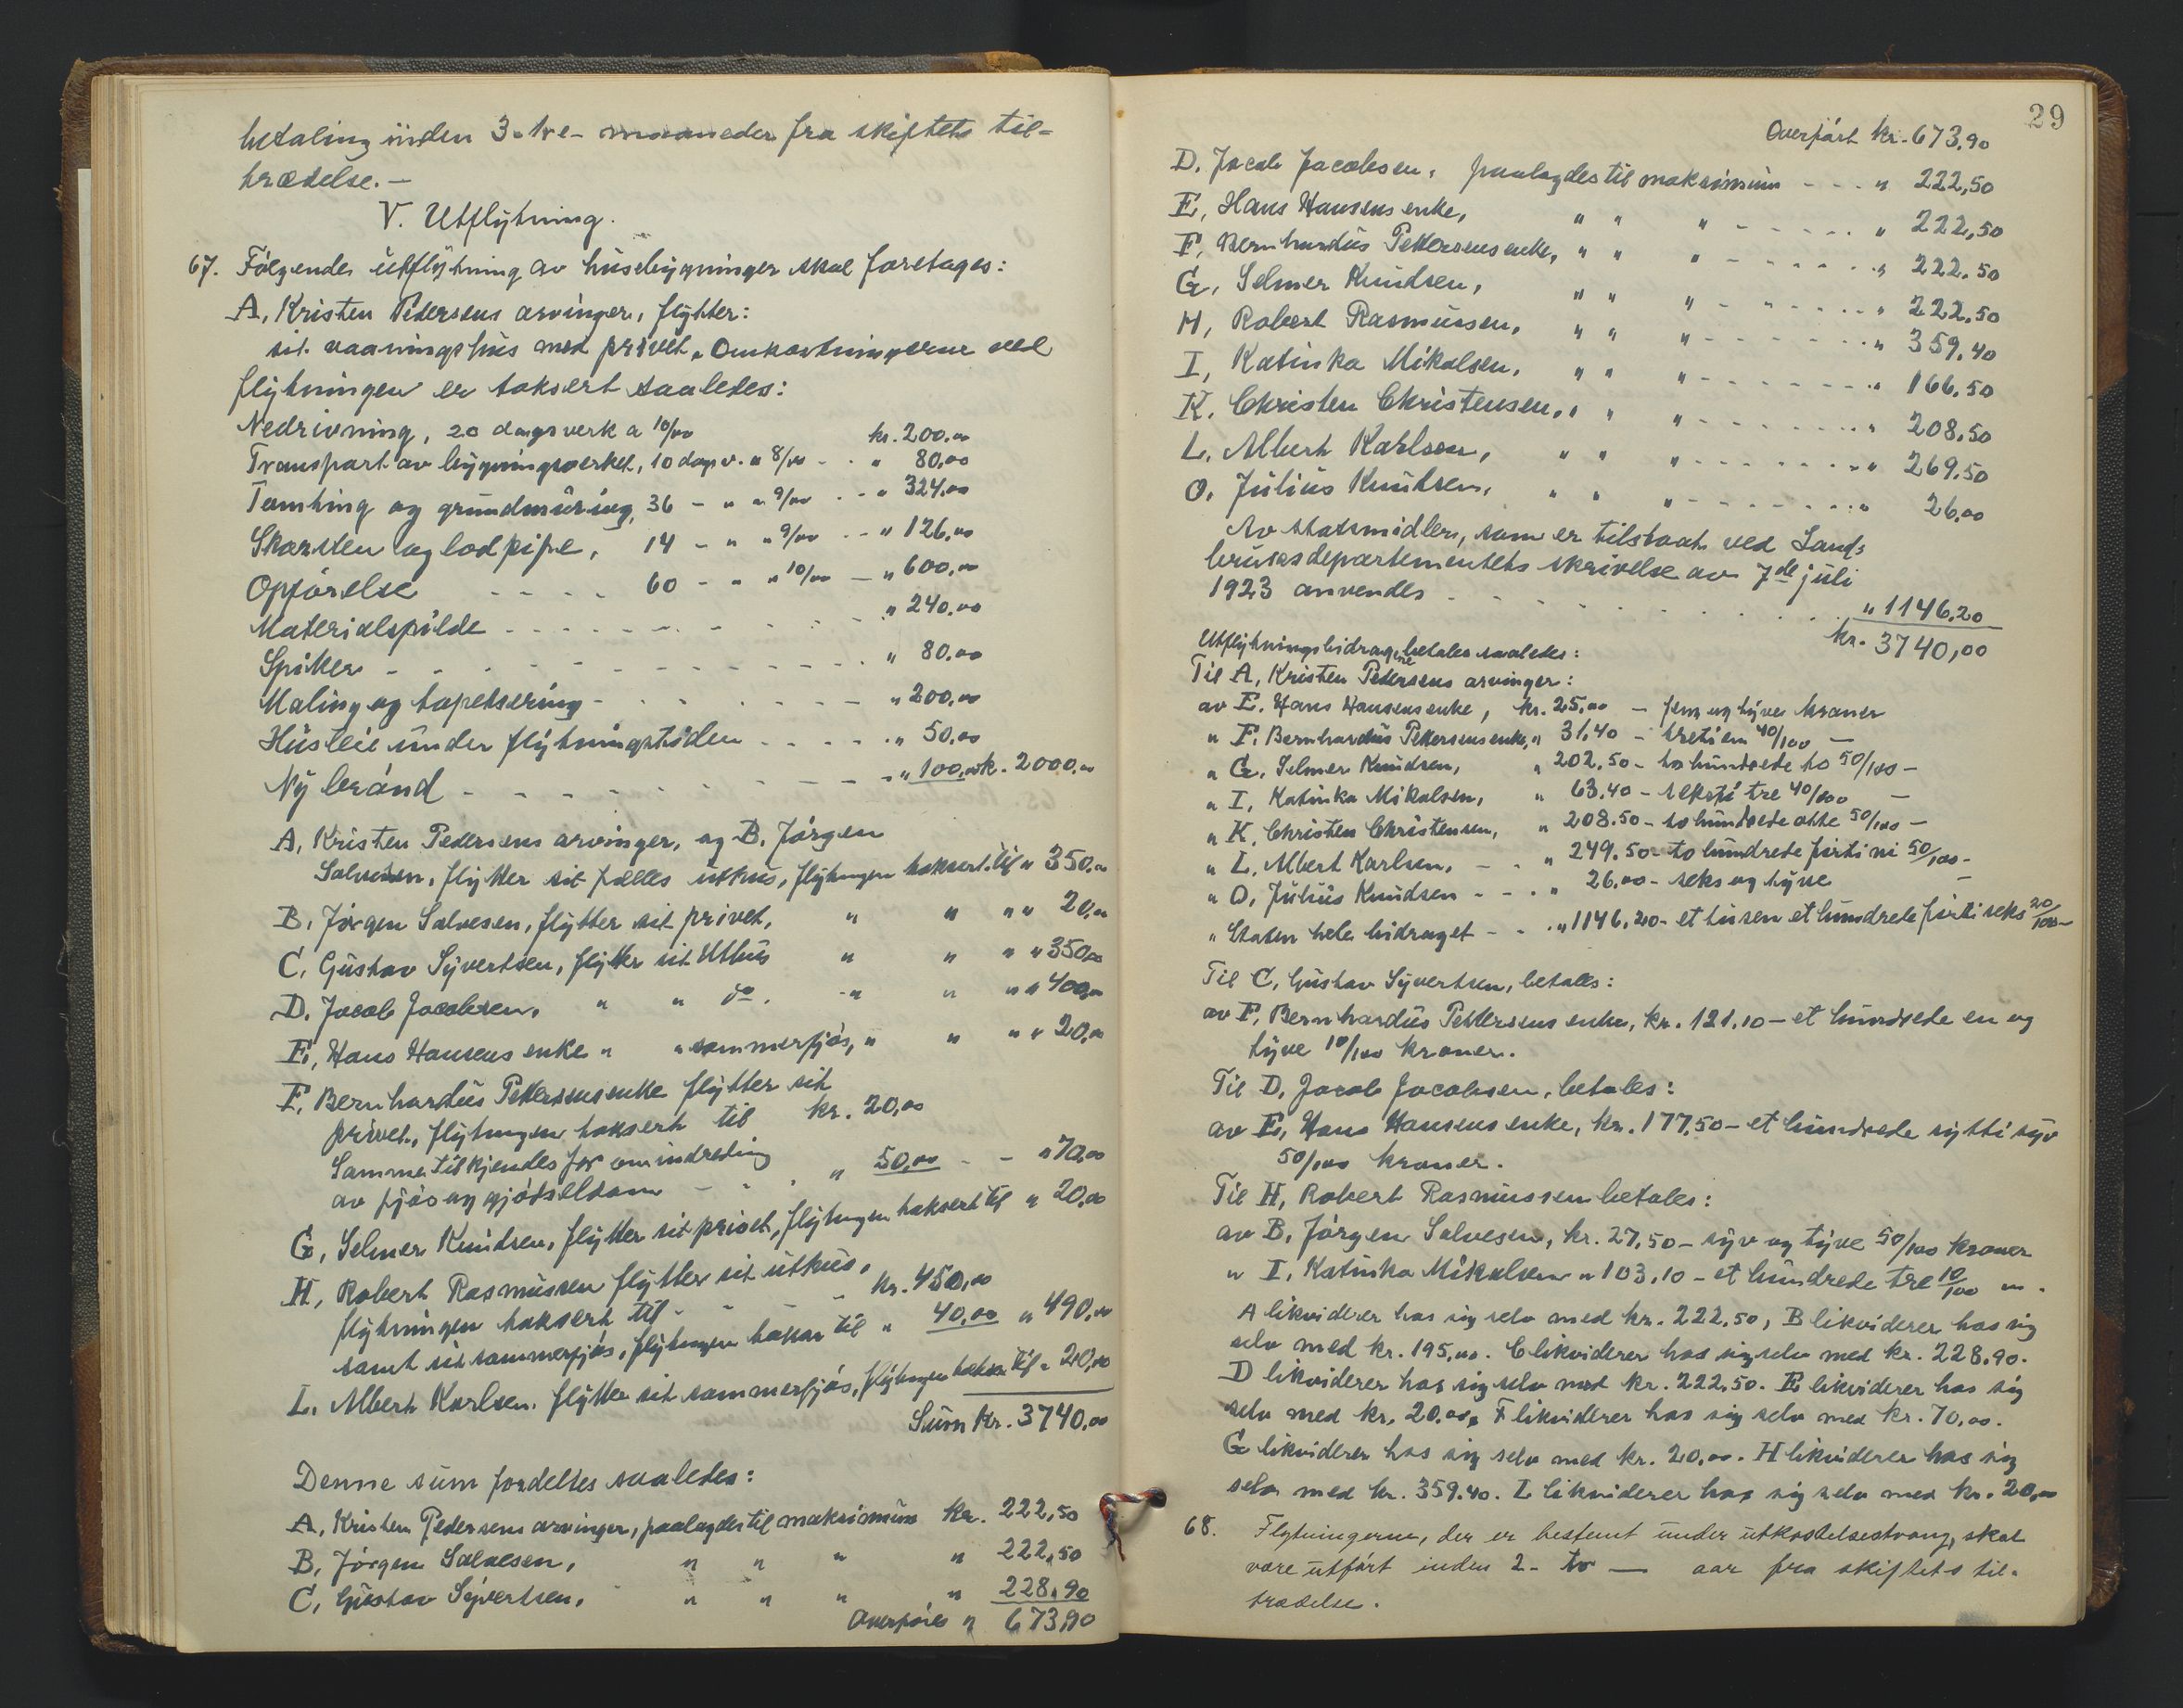 betaling inden 3-tre- maaneder fra skiftets til=
trædelse.-
V. Utflytning.
67. Følgende utflytning av husebygninger skal foretages:
A, Kristen Pedersens arvinger, flytter:
sit vaaningshus med privet. Omkostningerne ved
flytningen er taksert saaledes:
Nedrivning, 20 dagsverk a 10/00 kr. 200,00
Transport av bygningsverket, 10 dagsv. " 8/00 - - " 80,00
Tomting og grundmuring, 36 - " " 9/00 - - " 324,00
Skorsten og lodpipe, 14 - " " 9/00 - - " 126,00
Opførelse - - - - 60 - " " 10/00 - " 600,00
Materialspilde - - - - - - - - " 240,00
Spiker - - - - - - - - - - " 80,00
Maling og tapetsering - - - - - - " 200,00
Husleie under flytningstiden - - - - " 50,00
Ny brønd - - - - - - - - " 100,00 k. 2000,00
A, Kristen Pedersens arvinger, og B. Jørgen
Salvesen, flytter sit fælles uthus, flytningen taksert til " 350,00
B, Jørgen Salvesen, flytter sit privet, " " " " 20,00
C, Gustav Syvertsen, flytter sit uthus " " " " 350,00
D. Jacob Jacobsen, " " do. " " " " 400,00
E, Hans Hansens enke " " sommerfjøs, " " " " 20,00
F, Bernhardus Pettersens enke flytter sit
privet, flytningen taksert til kr. 20,00
Samme tilkjendes for omindreding
av fjøs og gjødseldam - - - " 50,00 - - " 70,00
G, Selmer Knudsen, flytter sit privet, flytningen taksert til " 20,00
H, Robert Rasmussen flytter sit uthus,
flytningen taksert til - - - kr. 450,00
samt sit sommerfjøs, flytningen takser til " 40,00 " 490,00
L. Albert Karlsen, flytter sit sommerfjøs, flytningen takser til " 20,00
Sum kr. 3740,00
Denne sum fordeltes saaledes:
A, Kristen Pedersens arvinger, paalagdes til maksimum kr. 222,50
B, Jørgen Salvesen, " " " " 222,50
C, Gustav Syvertsen, " " " " 228,90
Overføres " 673,90
29
Overført kr. 673,90
D. Jacob Jacobsen, paalagdes til maksimum - - - " 222,50
E, Hans Hansens enke, " " " - - - - - " 222,50
F, Bernhardus Pettersens enke, " " " - - - - - " 222,50
G, Selmer Knudsen, " " " - - - - - " 222,50
H, Robert Rasmussen, " " " - - - - - " 359,40
I, Katinka Mikalsen, " " " - - - - - " 166,50
K. Christen Christensen, " " " - - - - - " 208,50
L. Albert Karlsen, " " " - - - - - " 269,50
O. Julius Knudsen, " " " - - - - - " 26,00
Av statsmidler, som er tilstaat ved Land=
bruksdepartementets skrivelse av 7de juli
1923 anvendes - - - - - - - - - " 1146,20
kr. 3740,00
Utflytningsbidragene betales saaledes:
Til A, Kristen Pedersens arvinger:
av E. Hans Hansens enke, kr. 25,00 - fem og tyve kroner
" F. Bernhardus Pettersens enke, " 31.40 - tretien 40/100 -
" G, Selmer Knudsen, " 202,50 - to hundrede to 50/100 -
" I, Katinka Mikalsen, " 63.40 - seksti tre 40/100 -
" K, Christen Christensen, " 208.50 - to hundrede otte 50/100 -
" L, Albert Karlsen, - - " 249.50 - to hundrede førti ni 50/100 -
" O, Julius Knudsen - - - " 26,00 - seks og tyve -
" Staten hele bidraget - - - " 1146,20 - et tusen et hundrede førti seks 20/100 -
Til C, Gustav Syvertsen, betales:
av F, Bernhardus Pettersens enke, kr. 121,10 - et hundrede en og
tyve 10/100 kroner.
Til D, Jacob Jacobsen, betales:
av E, Hans Hansens enke, kr. 177,50 - et hundrede sytti syv
50/100 kroner.
Til H, Robert Rasmussen betales:
av B, Jørgen Salvesen, kr. 27,50 - syv og tyve 50/100 kroner
" I, Katinka Mikalsen " 103,10 - et hundrede tre 10/100 " .
A likviderer hos sig selv med kr. 222,50, B likviderer hos sig
selv med kr. 195,00. C likviderer hos sig selv med kr. 228,90.
D likviderer hos sig selv med kr. 222,50. E likviderer hos sig
selv med kr. 20,00, F likviderer hos sig selv med kr. 70,00.
G likviderer hos sig selv med kr. 20,00. H likviderer hos sig
selv med kr. 359.40. L likviderer hos sig selv med kr. 20,00
68. Flytningerne, der er bestemt under utkastelsestvang, skal
være utført inden 2- to - aar fra skiftets til-
trædelse.